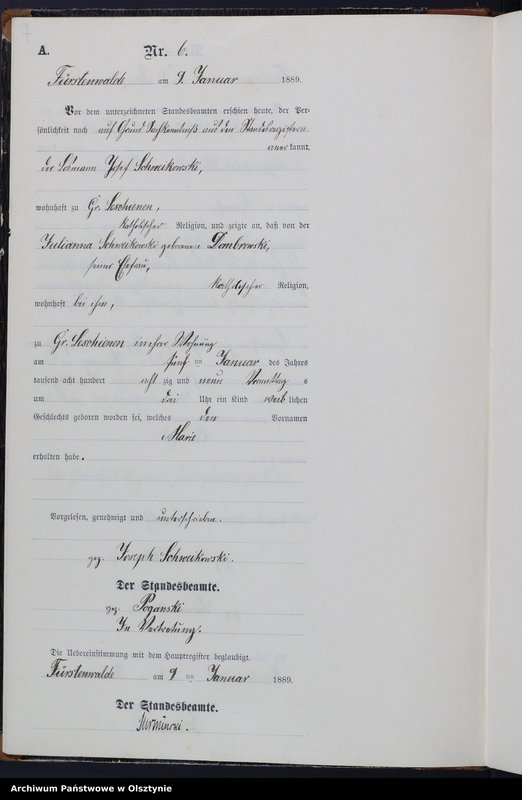 A.
Nr. 6.
Fürstenwalde am 9. Januar 1889.
Vor dem unterzeichneten Standesbeamten erschien heute, der Per-
sönlichkeit nach auf Grund aus den Standesregistern
anerkannt,
der Losmann Josef Schweikowski,
wohnhaft zu Gr. Leschienen,
katholischer Religion, und zeigte an, daß von der
Julianna Schweikowski geborenen Dombrowski,
seiner Ehefrau,
katholischer Religion,
wohnhaft bei ihm,
zu Gr. Leschienen in ihrer Wohnung
am fünf ten Januar des Jahres
tausend acht hundert acht zig und neun Vormittags
um drei Uhr ein Kind weib lichen
Geschlechts geboren worden sei, welches den Vornamen
Marie
erhalten habe.
Vorgelesen, genehmigt und unterschrieben.
gez. Joseph Schweikowski.
Der Standesbeamte.
gez. Poganski
In Vertretung.
Die Uebereinstimmung mit dem Hauptregister beglaubigt.
Fürstenwalde am 9 ten Januar 1889.
Der Standesbeamte.
Archiwum Państwowe w Olsztynie